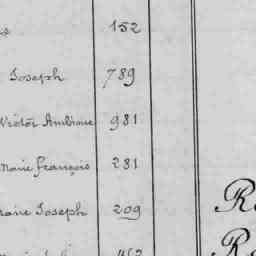 152
Joseph 789
Victor Ambroise 981
Marie François 281
Marie Joseph 209